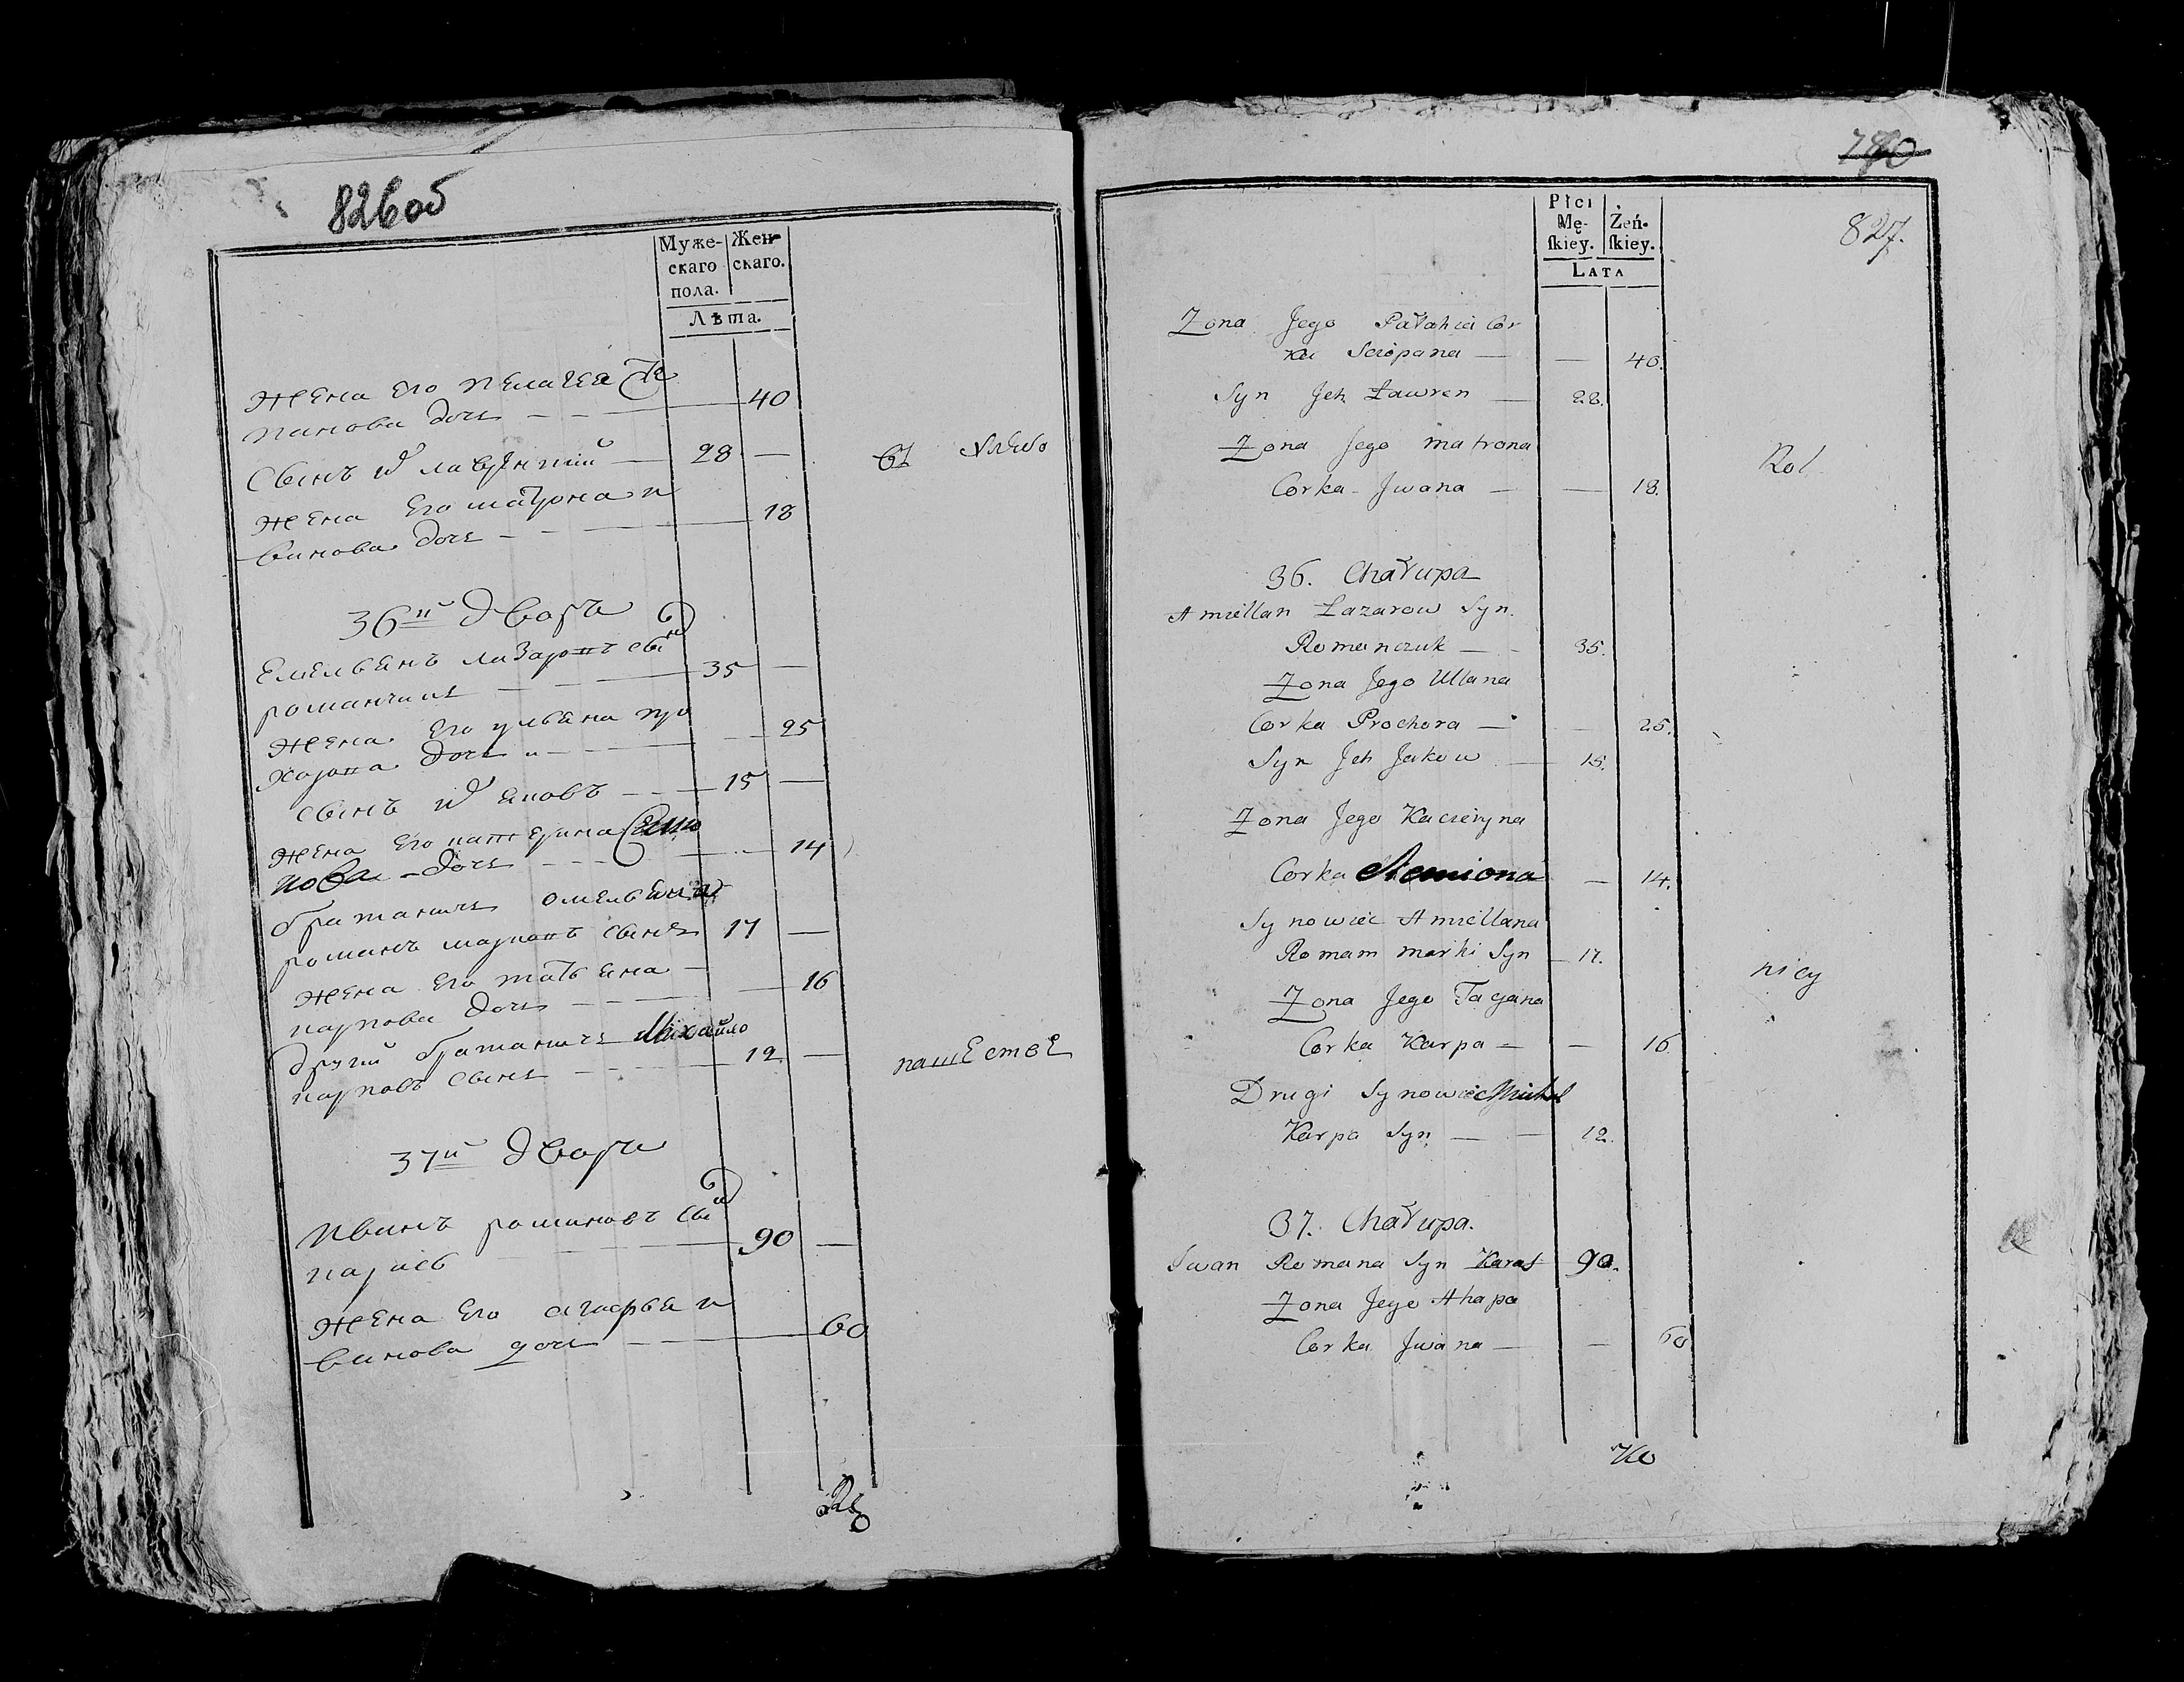 826об
Муже- Жен-
скаго скаго.
пола.
Лѣта.
Жена его пелагея Сте
панова дочь — 40
Сынъ их лаврентий — 28 —
въ хлѣбо
Жена его матрона и
ванова дочь — 18
36й двора
Емельянъ лазаровъ сынъ
романчикъ — 35 —
Жена его ульяна про
хорова дочь — 25
Сынъ их яковъ — 15 —
Жена его катерина Семио
нова дочь — 14
братаничь омельяна
романъ марковъ сынъ 17 —
Жена его татьяна —
карпова дочь — 16
другий братаничь Михайло
карповъ сынъ — 12 —
пашестве
37й двора
Иванъ романовъ сынъ
карась — 90 —
Жена его агафья и
ванова дочь — 60
740
827.
Płci
Mę- Żeń-
skiey. skiey.
Lata
Żona Jego Pałahia Cor
ka Sciepana — — 40.
Syn Jch Ławren — 28.
Żona Jego matrona
Rol
Corka Jwana — — 18.
36. Chałupa
Amiellan Łazarow Syn.
Romanczuk — 35.
Żona Jego Ullana
Corka Prochora — — 25.
Syn Jch Jakow — 15.
Żona Jego Kacieryna
Corka Siemiona — 14.
Synowiec Amiellana
Romam marki Syn — 17.
nicy
Żona Jego Tacyana
Corka Karpa — — 16.
Drugi Synowiec Michał
Karpa Syn — — 12.
37. Chałupa.
Iwan Romana Syn Karas 90.
Żona Jego Ahapa
Corka Jwana — — 60